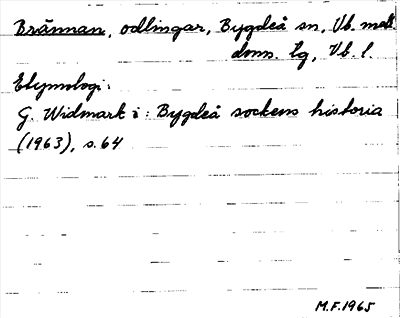 Brännan, odlingar, Bygdeå sn, Vb. mell.
doms. tg, Vb. l.
Etymologi:
G. Widmark i: Bygdeå sockens historia
(1963), s. 64
M.F. 1965